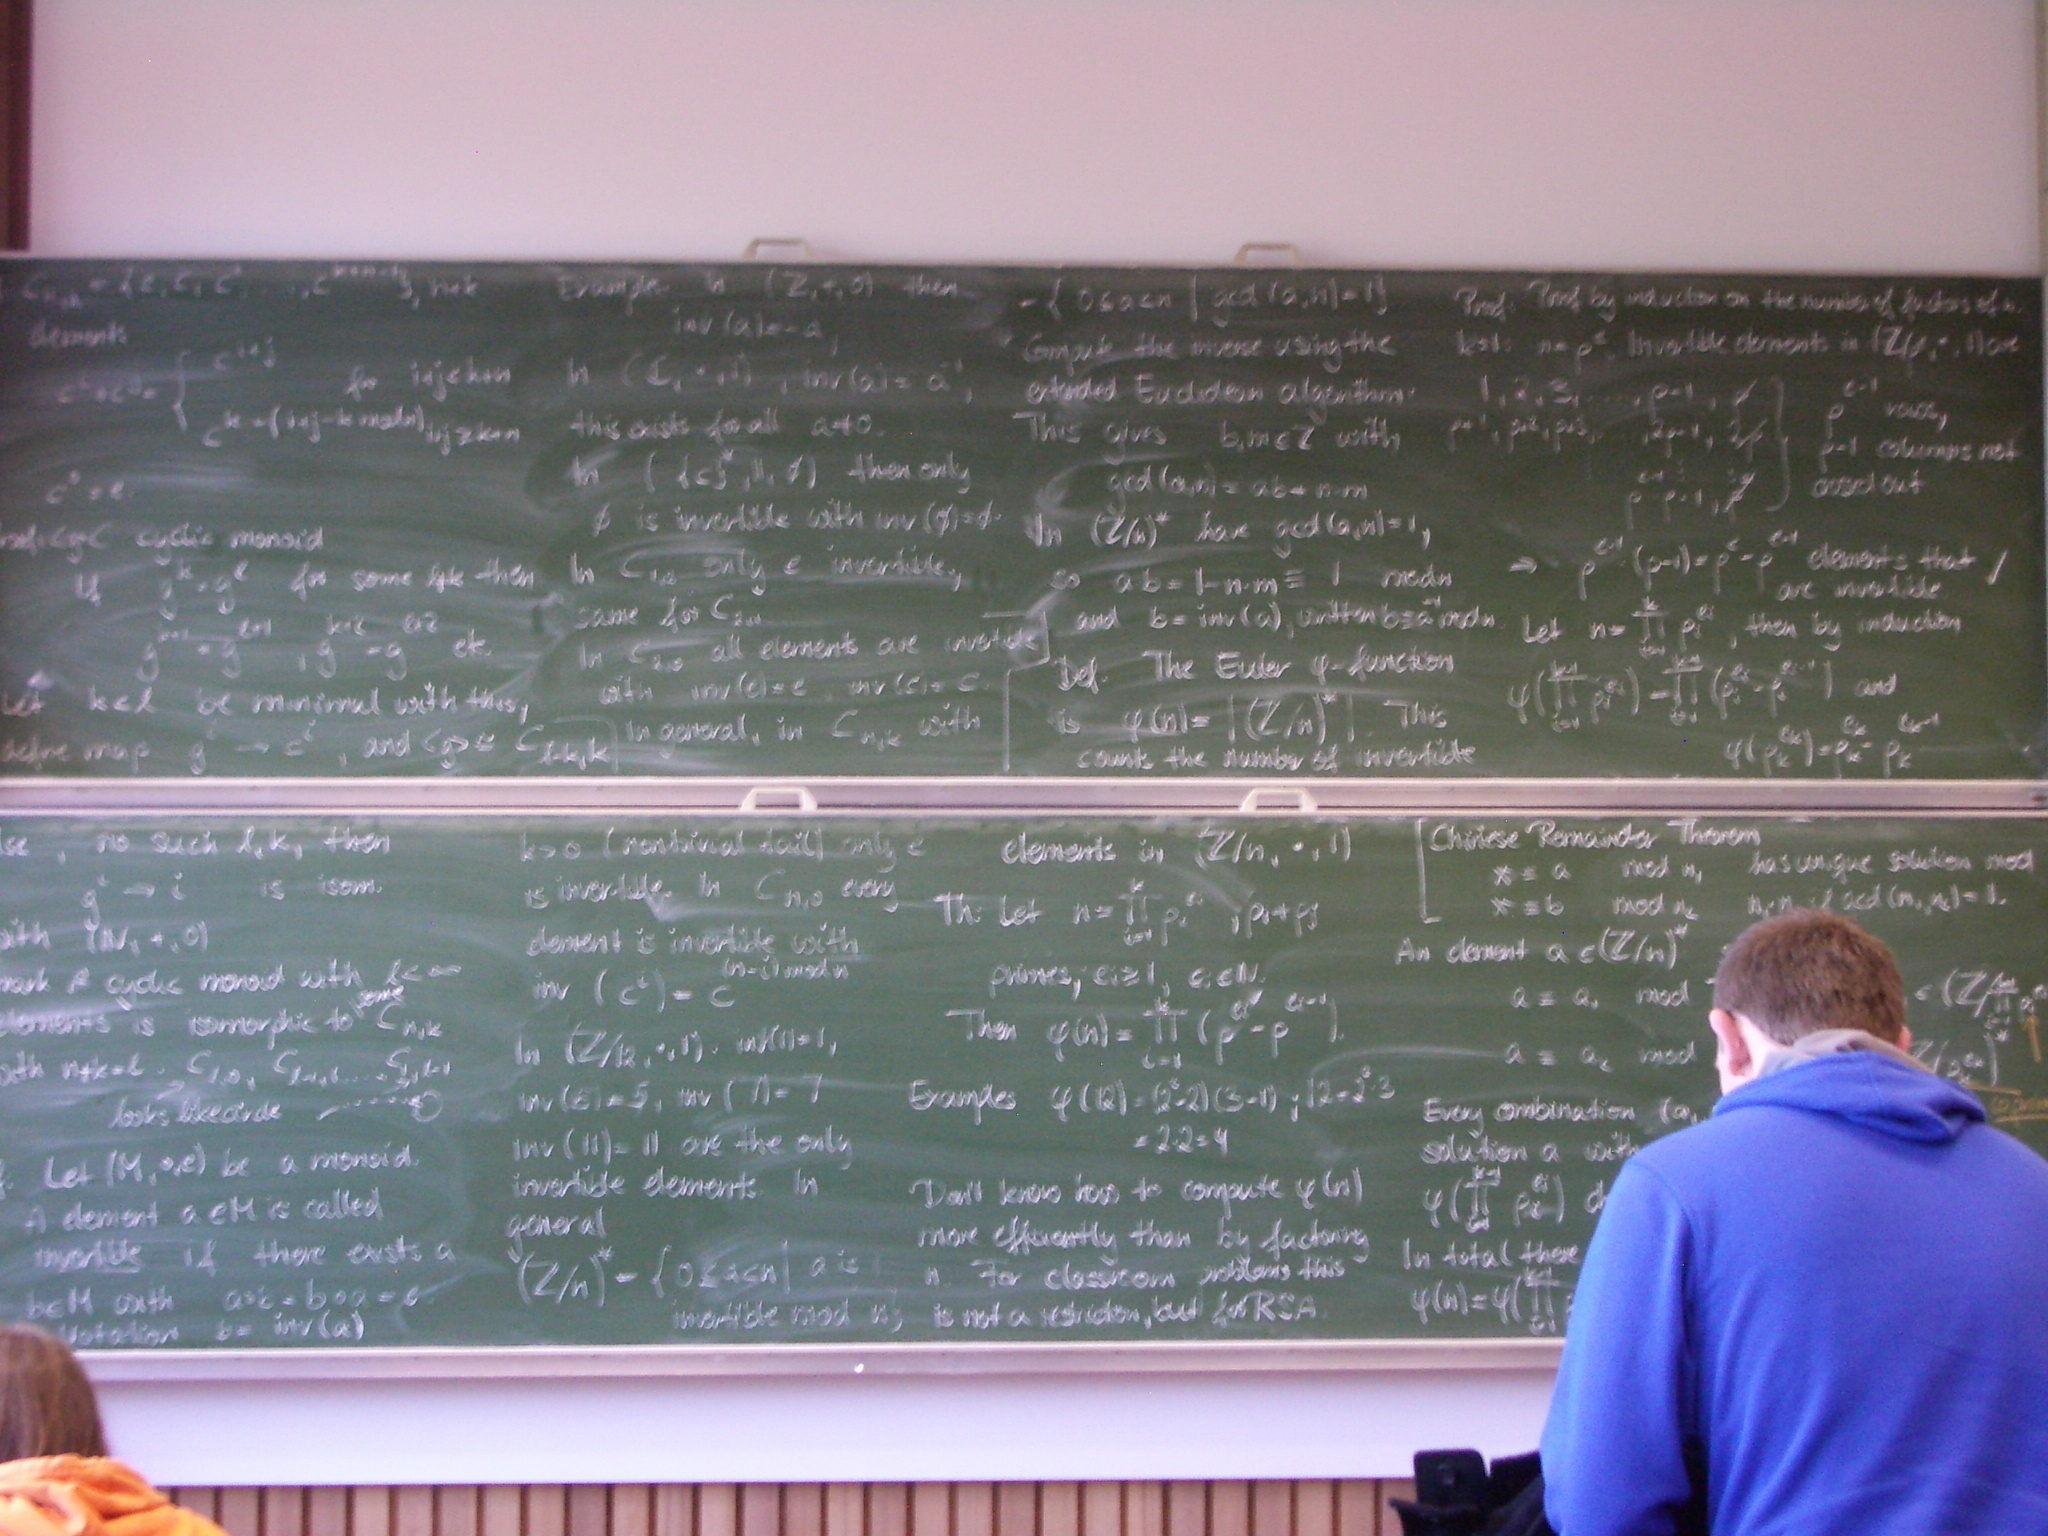 elements
c^{i+j} for i+j<k+n
c^{k+(i+j-k mod n)} i+j≥k+n
c^0 = e.
cyclic monoid
If g^k = g^l for some l≠k then
g^{k+1} = g^{l+1}, g^{k+2} = g^{l+2} etc.
Let k<l be minimal with this,
define map g^i → c^i, and <g> ≅ C_{l-k,k}
Example: In (Z,+,0) then
inv(a)=-a,
In (C,·,1), inv(a)=a^{-1},
this exists for all a≠0.
In ({c}*,||,∅) then only
∅ is invertible with inv(∅)=∅.
In only e invertible,
same for
In C_{2,0} all elements are invertible
with inv(e)=e, inv(c)=c
In general, in C_{n,k} with
={0≤a<n | gcd(a,n)=1}
Compute the inverse using the
extended Euclidean algorithm.
This gives b,m∈Z with
gcd(a,n)=ab+n·m
In (Z/n)* have gcd(a,n)=1,
so ab=1-n·m≡1 mod n
and b=inv(a), written b≡a^{-1} mod n.
Def. The Euler φ-function
is φ(n)=|(Z/n)*|. This
counts the number of invertible
Proof: Proof by induction on the number of factors of n.
k=1: n=p^e. Invertible elements in are
1, 2, 3, ..., p-1, p
p+1, p+2, p+3, ..., 2p-1, 2p
p^{e-1} rows,
p-1 columns not
crossed out
⇒ p^{e-1}·(p-1)=p^e-p^{e-1} elements that
are invertible ✓
Let n=∏_{i=1}^k p_i^{e_i}, then by induction
φ(∏_{i=1}^{k-1} p_i^{e_i})=∏_{i=1}^{k-1}(p_i^{e_i}-p_i^{e_i-1}) and
φ(p_k^{e_k})=p_k^{e_k}-p_k^{e_k-1}
no such l,k, then
g^i → i is isom.
with (N,+,0)
cyclic monoid with l<∞
elements is isomorphic to some C_{n,k}
with n+k=l. C_{l,0}, C_{l-1,1}, ..., C_{1,l-1}
looks like circle
Let (M,∘,e) be a monoid.
A element a∈M is called
invertible if there exists a
b∈M with a∘b=b∘a=e.
Notation b=inv(a)
k>0 (nontrivial tail) only e
is invertible. In C_{n,0} every
element is invertible with
inv(c^i)=c^{(n-i) mod n}
In (Z/12,·,1): inv(1)=1,
inv(5)=5, inv(7)=7
inv(11)=11 are the only
invertible elements. In
general
(Z/n)*={0≤a<n| a is
invertible mod n}
elements in (Z/n,·,1)
Th: Let n=∏_{i=1}^k p_i^{e_i}, p_i≠p_j
primes, e_i≥1, e_i∈N.
Then φ(n)=∏_{i=1}^k(p^{e_i}-p^{e_i-1}).
Examples φ(12)=(2²-2)(3-1); 12=2²·3
=2·2=4
Don't know how to compute φ(n)
more efficiently than by factoring
n. For classroom problems this
is not a restriction, but for RSA.
Chinese Remainder Theorem
x≡a mod n₁ has unique solution mod
x≡b mod n₂ n₁·n₂ if gcd(n₁,n₂)=1.
An element a∈(Z/n)*
a≡a₁ mod
a≡a₂ mod
Every combination (a₁
solution a with
φ(∏_{i=1}^{k-1} p_i^{e_i})
In total there
φ(n)=φ(∏_{i=1}^{k-1}